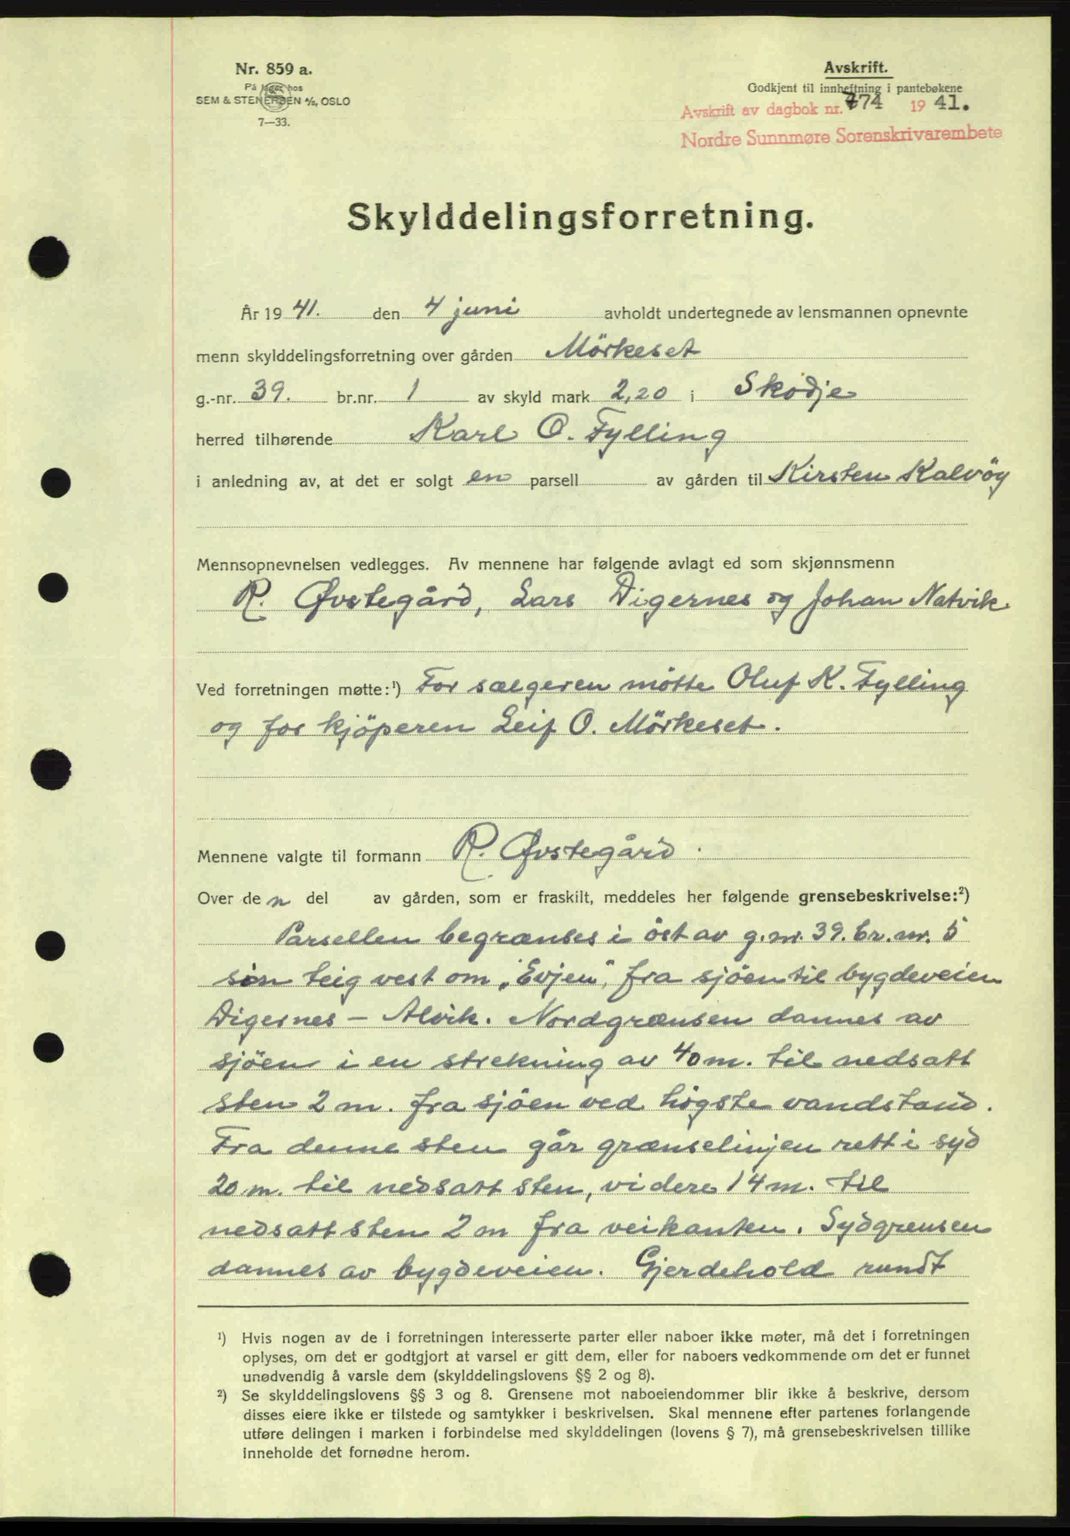 Nr. 859 a.
På lager hos
SEM & STENERSEN A/S, OSLO
7—33.
Avskrift.
Godkjent til innheftning i pantebøkene
Avskrift av dagbok nr. 774 1941.
Nordre Sunnmøre Sorenskrivarembete
Skylddelingsforretning.
År 19 41. den 4 juni avholdt undertegnede av lensmannen opnevnte
menn skylddelingsforretning over gården Mörkeset
g.-nr. 39. br.nr. 1 av skyld mark 2,20 i Skodje
herred tilhørende Karl O. Fylling
i anledning av, at det er solgt en parsell av gården til Kirsten Kalvöy
Mennsopnevnelsen vedlegges. Av mennene har følgende avlagt ed som skjønnsmenn
R. Øvstegård, Lars Digernes og Johan Natvik
Ved forretningen møtte:¹) For sælgeren mötte Oluf K. Fylling
og for kjöperen Leif O. Mörkeset.
Mennene valgte til formann R. Øvstegård.
Over den del av gården, som er fraskilt, meddeles her følgende grensebeskrivelse:²)
Parsellen begrænses i öst av g.nr. 39. br.nr. 5
sin teig vest om „Evjen", fra sjöen til bygdeveien
Digernes – Alvik. Nordgrænsen dannes av
sjöen i en strekning av 40 m. til nedsatt
sten 2 m. fra sjöen ved högste vandstand.
Fra denne sten går grænselinjen rett i syd
20 m. til nedsatt sten, videre 14 m. til
nedsatt sten 2 m fra veikanten. Sydgrensen
dannes av bygdeveien. Gjerdehold rundt
¹) Hvis nogen av de i forretningen interesserte parter eller naboer ikke møter, må det i forretningen
oplyses, om det er godtgjort at varsel er gitt dem, eller for naboers vedkommende om det er funnet
unødvendig å varsle dem (skylddelingslovens §§ 2 og 8).
²) Se skylddelingslovens §§ 3 og 8. Grensene mot naboeiendommer blir ikke å beskrive, dersom
disses eiere ikke er tilstede og samtykker i beskrivelsen. Skal mennene efter partenes forlangende
utføre delingen i marken i forbindelse med skylddelingen (lovens § 7), må grensebeskrivelsen tillike
inneholde det fornødne herom.